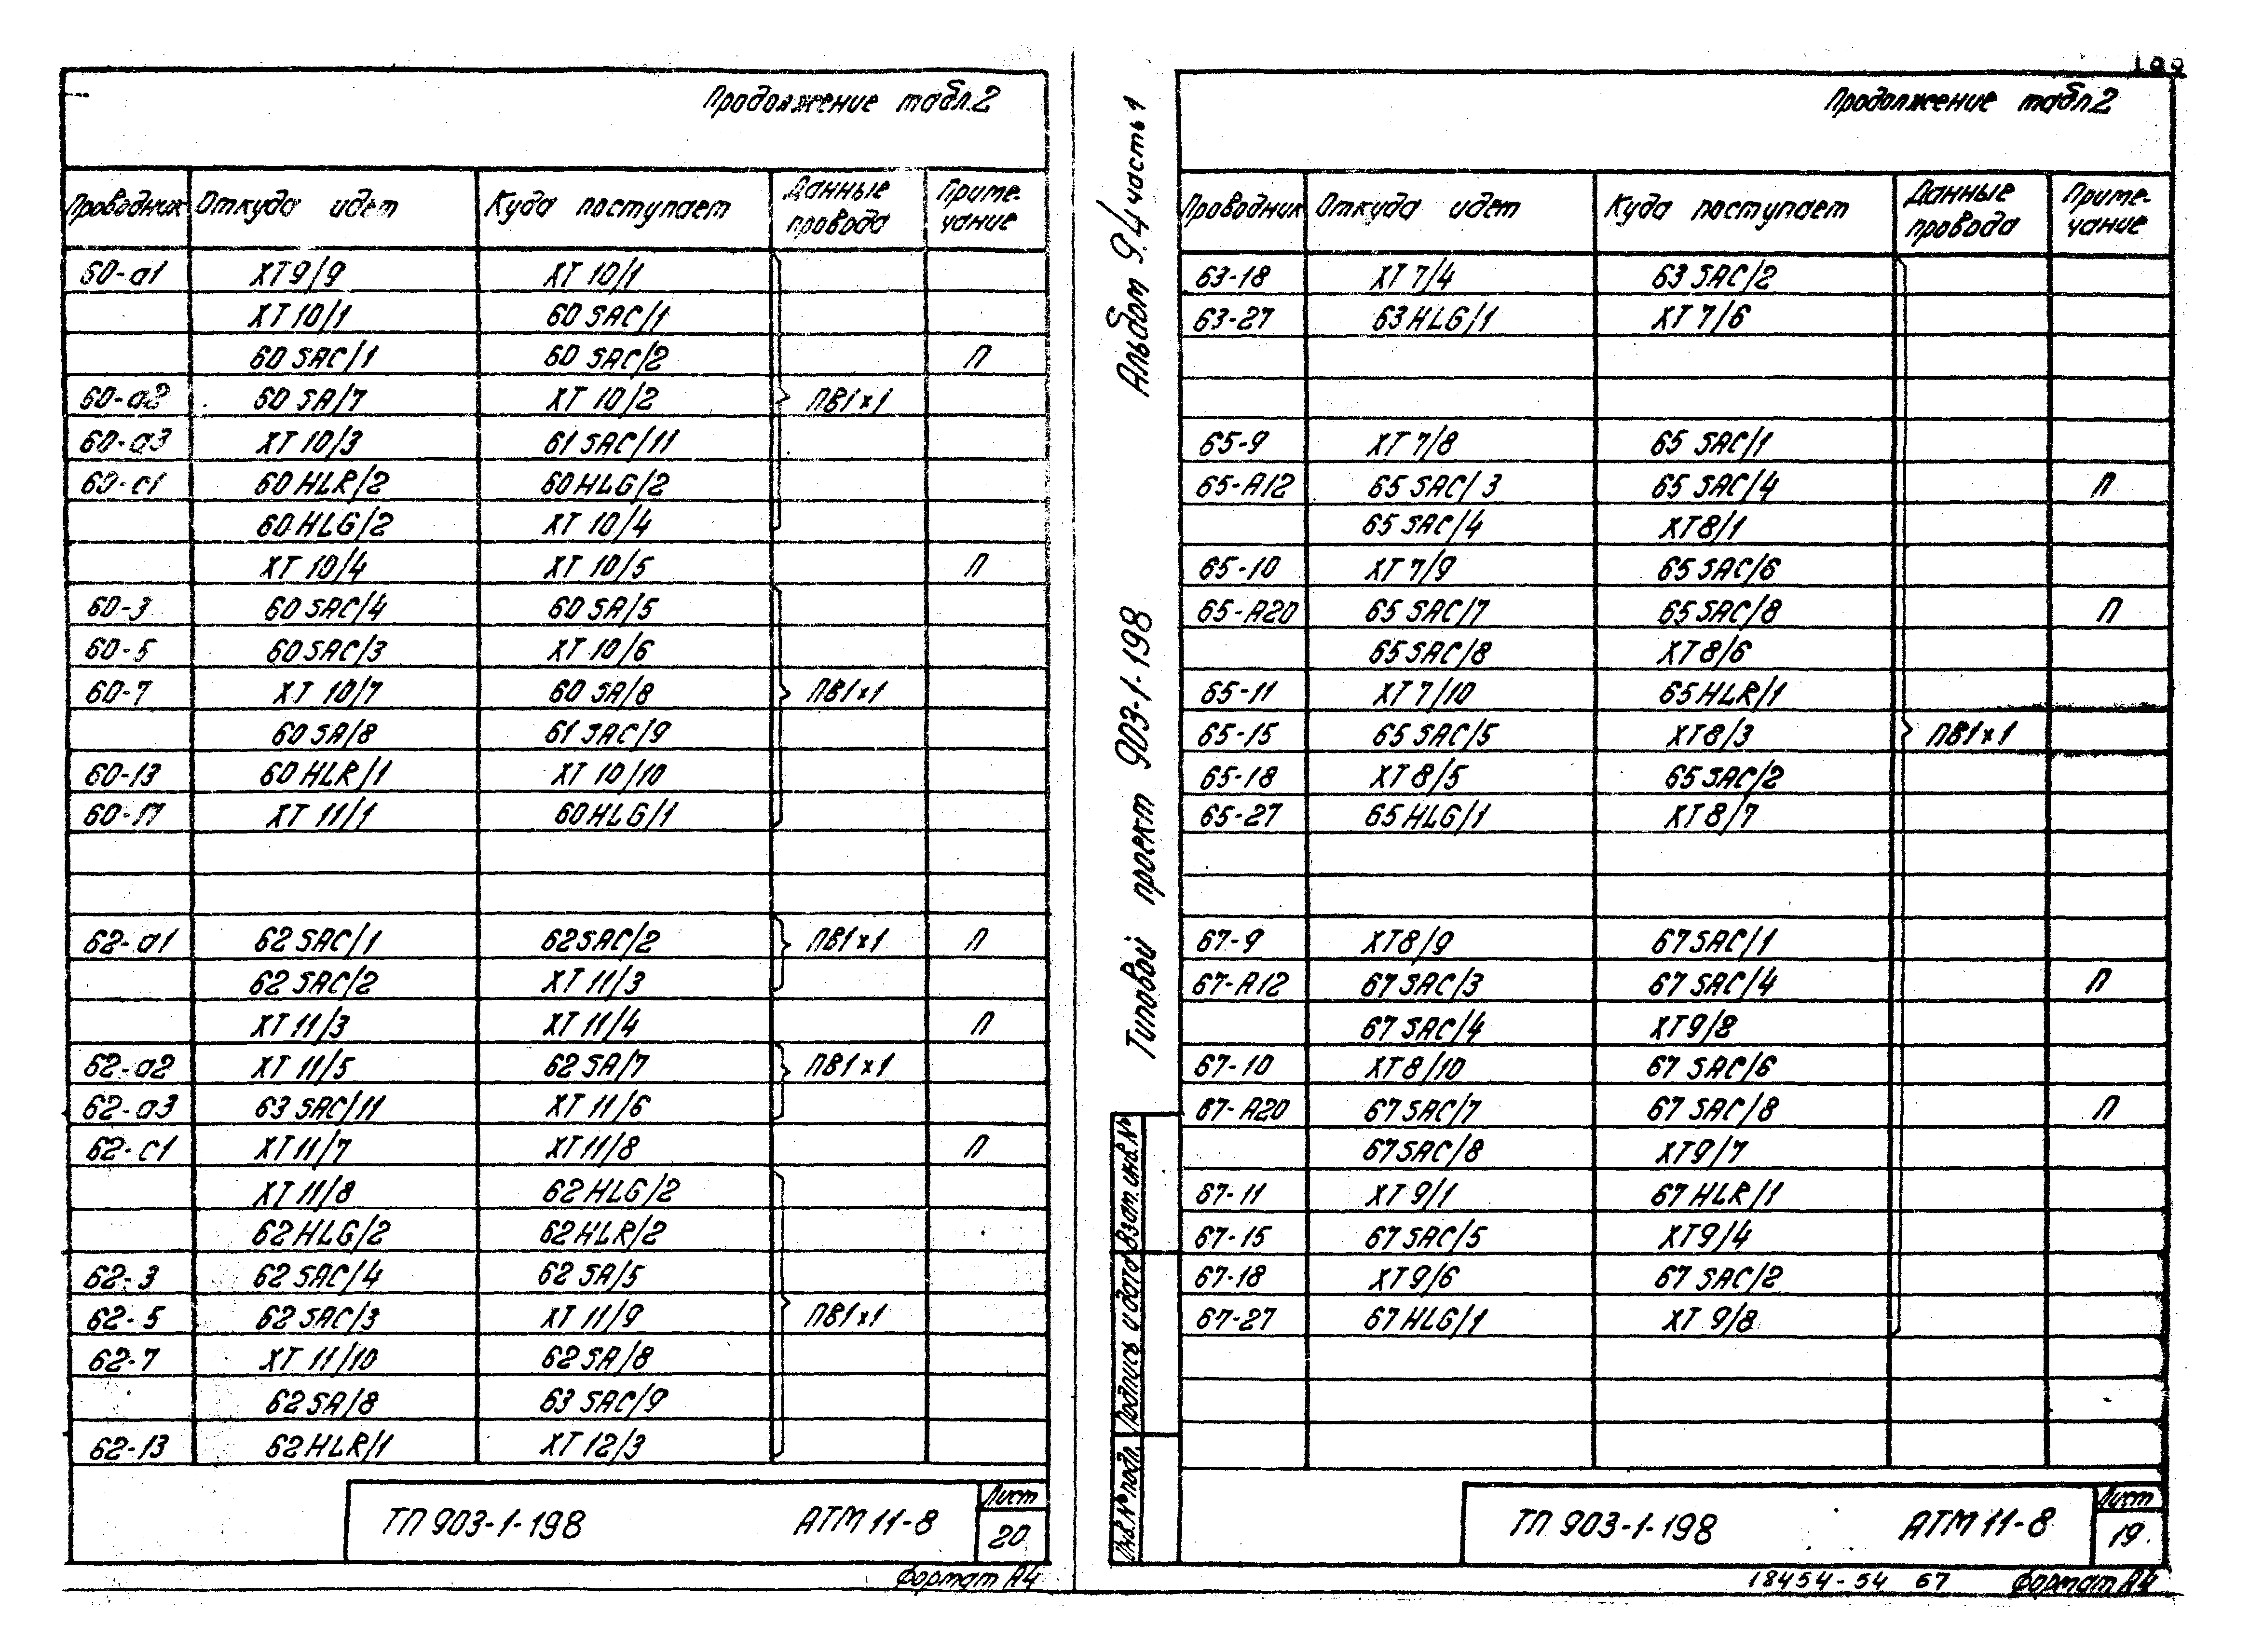 Продолжение табл.2
Проводник Откуда идет Куда поступает Данные провода Приме-чание
60-а1 ХТ9/9 ХТ 10/1
ХТ 10/1 60 SAC/1
60 SAC/1 60 SAC/2 П
60-а2 60 SA/7 ХТ 10/2 ПВ1×1
60-а3 ХТ 10/3 61 SAC/11
60-с1 60 HLR/2 60 HLG/2
60 HLG/2 ХТ 10/4
ХТ 10/4 ХТ 10/5 П
60-3 60 SAC/4 60 SA/5
60-5 60 SAC/3 ХТ 10/6
60-7 ХТ 10/7 60 SA/8 ПВ1×1
60 SA/8 61 SAC/9
60-13 60 HLR/1 ХТ 10/10
60-17 ХТ 11/1 60 HLG/1
62-а1 62 SAC/1 62 SAC/2 ПВ1×1 П
62 SAC/2 ХТ 11/3
ХТ 11/3 ХТ 11/4 П
62-а2 ХТ 11/5 62 SA/7 ПВ1×1
62-а3 63 SAC/11 ХТ 11/6
62-с1 ХТ 11/7 ХТ 11/8 П
ХТ 11/8 62 HLG/2
62 HLG/2 62 HLR/2
62-3 62 SAC/4 62 SA/5
62-5 62 SAC/3 ХТ 11/9 ПВ1×1
62-7 ХТ 11/10 62 SA/8
62 SA/8 63 SAC/9
62-13 62 HLR/1 ХТ 12/3
ТП 903-1-198 АТМ 11-8 Лист 20
Формат А4
Альбом 9.4 часть 1
Типовой проект 903-1-198
Взам. инв. №
Подпись и дата
Инв. № подл.
Продолжение табл.2
Проводник Откуда идет Куда поступает Данные провода Приме-чание
63-18 ХТ 7/4 63 SAC/2
63-27 63 HLG/1 ХТ 7/6
65-9 ХТ 7/8 65 SAC/1
65-А12 65 SAC/3 65 SAC/4 П
65 SAC/4 ХТ8/1
65-10 ХТ 7/9 65 SAC/6
65-А20 65 SAC/7 65 SAC/8 П
65 SAC/8 ХТ8/6
65-11 ХТ 7/10 65 HLR/1
65-15 65 SAC/5 ХТ8/3 ПВ1×1
65-18 ХТ 8/5 65 SAC/2
65-27 65 HLG/1 ХТ 8/7
67-9 ХТ8/9 67 SAC/1
67-А12 67 SAC/3 67 SAC/4 П
67 SAC/4 ХТ9/2
67-10 ХТ8/10 67 SAC/6
67-А20 67 SAC/7 67 SAC/8 П
67 SAC/8 ХТ9/7
67-11 ХТ 9/1 67 HLR/1
67-15 67 SAC/5 ХТ9/4
67-18 ХТ9/6 67 SAC/2
67-27 67 HLG/1 ХТ 9/8
ТП 903-1-198 АТМ 11-8 Лист 19
18454-54 67 Формат А4